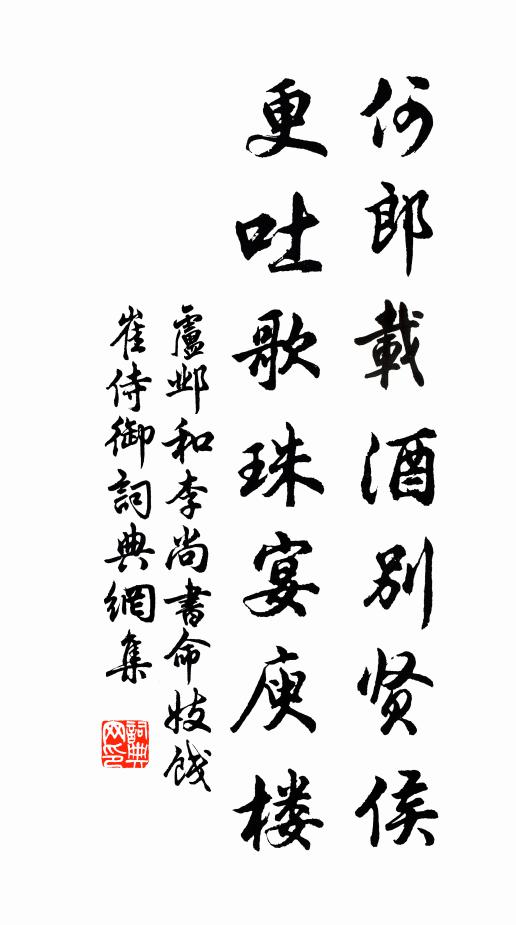 何郎載酒別贤侯
更吐歌珠宴庾楼
盧邺和李尚書命妓餞
崔侍御詞典網集
詞典
网印